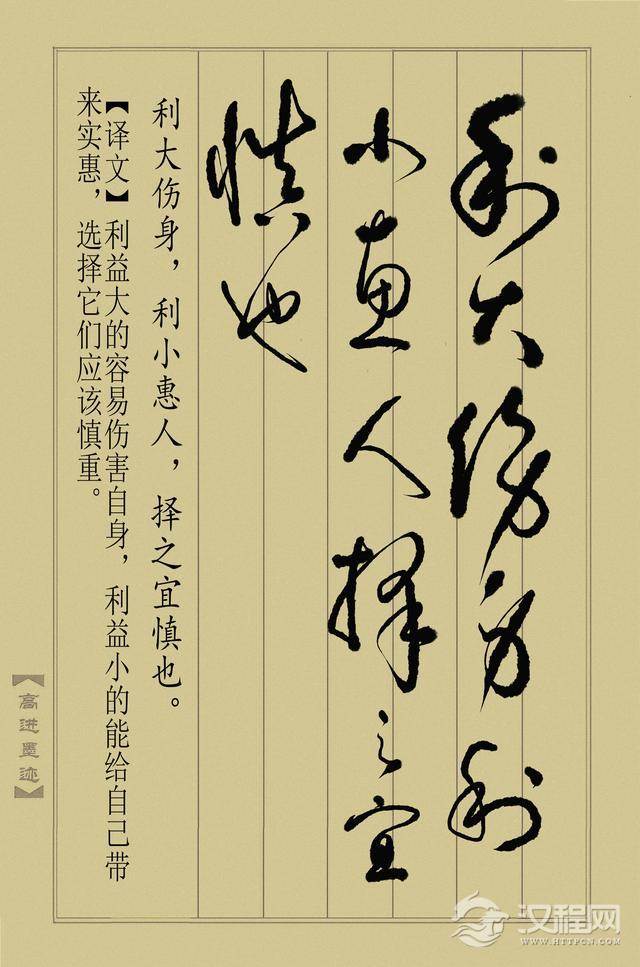 利大伤身利
小惠人择之宜
慎也
利大伤身，利小惠人，择之宜慎也。
【译文】利益大的容易伤害自身，利益小的能给自己带
来实惠，选择它们应该慎重。
【高进墨迹】
汉程网
WWW.HTTPCN.COM